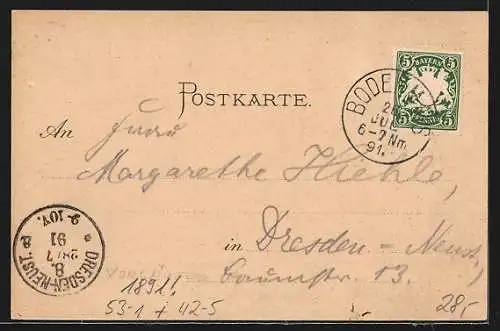 BAYERN
5 5
5 PFENNIG 5
BODEN
JUL
6-7 Nm.
91.
POSTKARTE.
An
Margarethe Hiehle,
in Dresden-Neust.
13.
DRESDEN-NEUST. 8.
8.
91
9-10V.
1891!
53-1 + 42-5
28,-